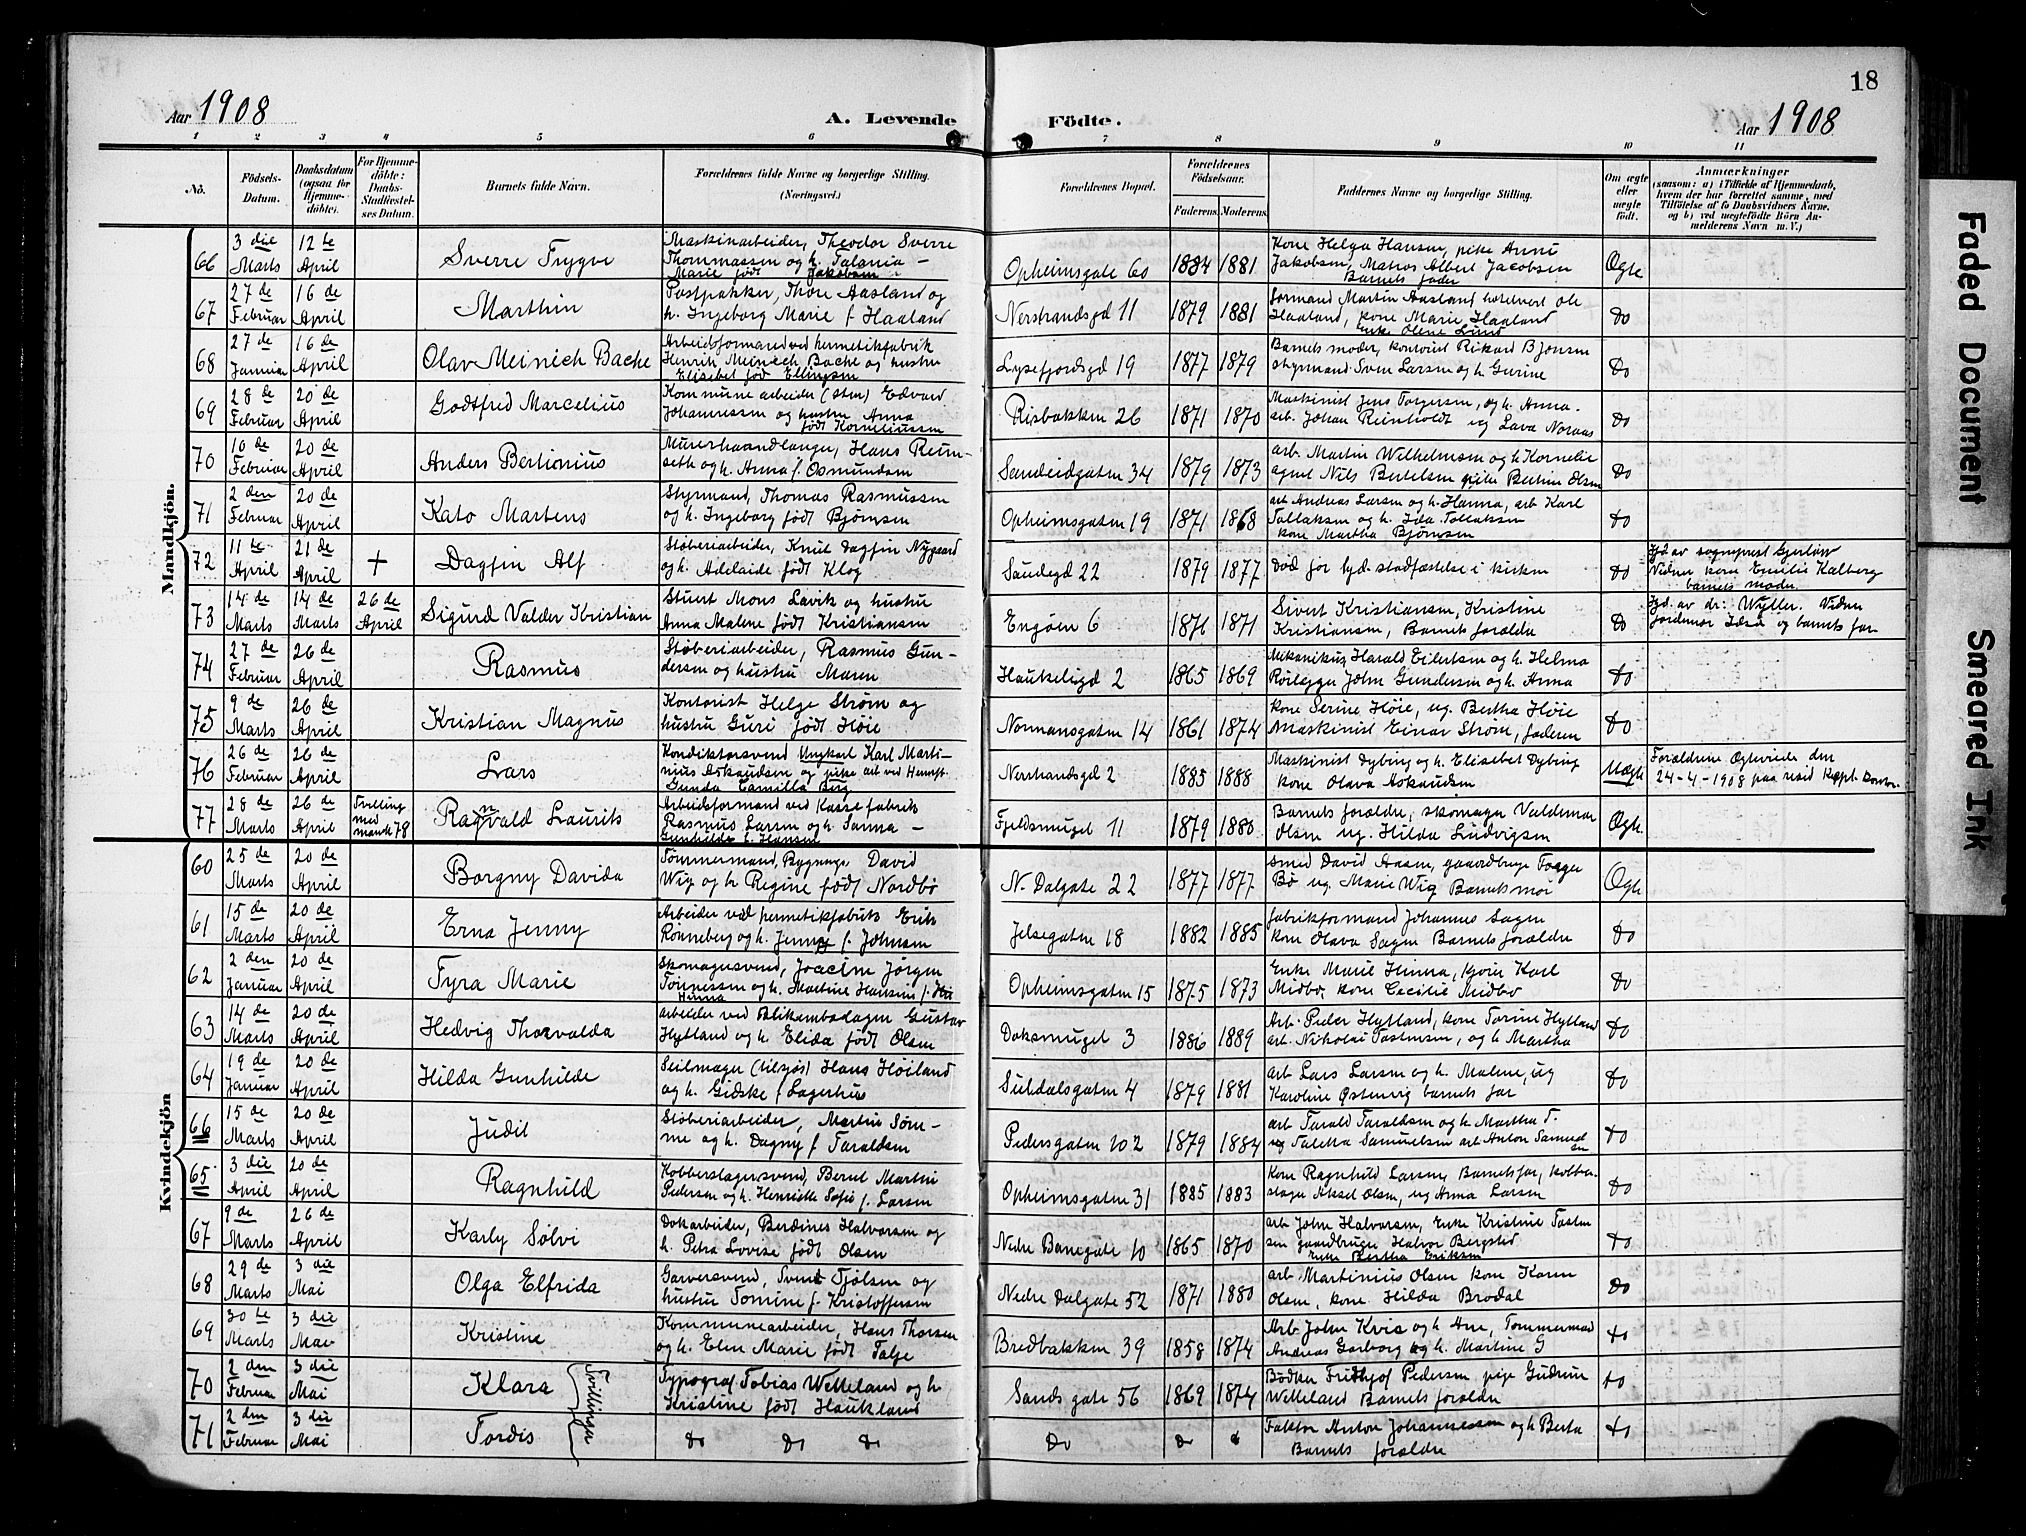 18
Aar 1908
A. Levende Födte.
Aar 1908
1 2 3 4 5 6 7 8 9 10 11
No.
Födsels-
Datum.
Daabsdatum
(ogsaa for
Hjemme-
döbte).
For Hjemme-
döbte:
Daabs-
Stadfæstel-
ses Datum.
Barnets fulde Navn.
Forældrenes fulde Navne og borgerlige Stilling.
(Næringsvei.)
Forældrenes Bopæl.
Forældrenes
Födselsaar.
Faderens. Moderens.
Faddernes Navne og borgerlige Stilling.
Om ægte
eller
uægte
födt.
Anmærkninger
(saasom: a) i Tilfælde af Hjemmedaab,
hvem der har forrettet samme, med
Tilföielse af to Daabsvidners Navne,
og b) ved uægtefödte Börn An-
melderens Navn m. V.)
Mandkjön.
66 3 die Marts 12 te April Sverre Trygve
Maskinarbeider, Theodor Sverre
Thommassen og h. Talania -
Marie født Jakobsen
Opheimsgate 60 1884 1881
Kone Helga Hansen, pike Anni
Jakobsen, Matros Albert Jacobsen
Barnets fader
Ægte
67 27 de Februar 16 de April Marthin
Postpakker, Thore Aasland og
h. Ingeborg Marie f. Haaland
Nerstrandsgd 11 1879 1881
Formand Martin Aasland hotelvert Ole
Haaland, kone Marie Haaland
Enke Olene Lund
Do
68 27 de Januar 16 de April Olav Meinich Bache
Arbeidsformand ved hermetikfabrik
Henrik Meinich Bache og hustru
Elisabet født Ellingsen
Lysefjordsgd 19 1877 1879
Barnets moder, kontorist Rikard Bjønsen
styrmand Sven Larsen og h. Gurine
Do
69 28 de Februar 20 de April Godtfred Marcelius
Kommune arbeider (sten) Edvard
Johannessen og hustru Anna
født Korneliussen
Risbakken 26 1871 1870
Maskinist Jens Torgersen, og h. Anna.
arb. Johan Reinholdt ug Lava Noraas
Do
70 10 de Februar 20 de April Anders Bertionius
Murerhaandlanger, Hans Reun-
seth og h. Anna f. Osmundsen
Sandeidgaten 34 1879 1873
arb. Martin Wilhelmsen og h Kornelie
agent Nils Bertelsen pike Bertine Olsen
Do
71 2 den Februar 20 de April Kato Martens
Styrmand, Thomas Rasmussen
og h. Ingeborg født Bjørnsen
Opheimsgaten 19 1871 1868
arb Andreas Larsen og h. Hanna, arb Karl
Tollaksen og h. Ida Tollaksen
kone Martha Bjørnsen
Do
72 11 te April 21 de April + Dagfin Alf
Støberiarbeider, Knut Dagfin Nygaard
og h. Adelaide født Klog
Saudegd 22 1879 1877
Død før lyd. stadfæstelse i kirken
Do
Hjd av sogneprest Gjerløw
Vidner kone Emilie Kalberg
barnets moder
73 14 de Marts 14 de Marts 26 de April Sigurd Valder Kristian
Stuert Mons Lavik og hustru
Anna Malene født Kristiansen
Engøen 6 1871 1871
Sivert Kristiansen, Kristine
Kristiansen, Barnets forældre
Do
Hjd. av dr: Wyller. Vidner
Jordemor Idsø og barnets far
74 27 de Februar 26 de April Rasmus
Støberiarbeider, Rasmus Gun-
dersen og hustru Maren
Haukeligd 2 1865 1869
Mekanikus Harald Eilertsen og h. Helma
Rørlegger John Gundersen og h. Anna
Do
75 9 de Marts 26 de April Kristian Magnus
Kontorist Helge Strøm og
hustru Guri født Høie
Normansgaten 14 1861 1874
Kone Serine Høie, ug. Bertha Høie
Maskinist Einar Strøm, faderen
Do
76 26 de Februar 26 de April Lars
Konditorsvend Ungkarl Karl Marti-
nius Askeudsen og pike arb ved Hermet.
Gunda Camilla Berg
Nerstrandsgd 2 1885 1888
Maskinist Dybing og h. Elisabet Dybing
kone Olava Askeudsen
Uægte
Forældrene Ægteviede den
24-4-1908 paa resid Kapt. Kontor.
77 28 de Marts 26 de April Tvilling med mank 78 Ragnvald Laurits
Arbeidsformand ved Kassefabrik
Rasmus Larsen og h. Sanna -
Gunhilde f. Hansen
Fjeldsmuget 11 1879 1880
Barnets forældre, skomager Valdemar
Olsen ug. Hilda Ludvigsen
Ægte
Kvindekjön
60 25 de Marts 20 de April Borgny Davida
Tømmermand, Bygnings David
Wig og h Regine født Nordbø
N. Dalgate 22 1877 1877
Smed David Aasen, gaardbruger Torger
Bø ug. Marie Wig Barnets mor
Ægte
61 15 de Marts 20 de April Erna Jenny
Arbeider ved hermetikfabrik Erik
Rønneberg og h. Jenny f. Johnsen
Jelsegaten 18 1882 1885
Fabrikformand Johannes Sagen
kone Olava Sagen Barnets forældre
Do
62 2 den Januar 20 de April Tyra Marie
Skomagersvend, Joacim Jørgen
Tønnessen og h. Martine Hansine f.
Hinna
Opheimsgaten 15 1875 1873
Enke Marie Hinna, kjører Karl
Midbø, kone Cecilie Midbø
Do
63 14 de Marts 20 de April Hedvig Thorvalda
arbeider ved Blikemballagen Gustav
Hytland og h. Elida født Olsen
Doksmuget 3 1886 1889
Arb. Peder Hytland, kone Torine Hytland
arb. Nikolai Tostensen, og h Martha
Do
64 19 de Januar 20 de April Hilda Gunhilde
Seilmager (tilsjøs) Hans Høiland
og h. Gidske f Lagerhus
Suldalsgaten 4 1879 1881
arb Lars Larsen og h. Malene, ug
Karoline Østenvig barnets far
Do
66 15 de Marts 20 de April Judit
Støberiarbeider, Martin Søm-
me og h. Dagny f Taraldsen
Pedersgaten 102 1879 1884
arb. Tarald Taraldsen og h Martha T.
ug Taletta Samuelsen arb Anton Samuel
sen
Do
65 3 die April 20 de April Ragnhild
Kobberslagersvend, Bernt Martin
Pedersen og h. Henriette Sofie f. Larsen
Opheimsgaten 31 1885 1883
Kone Ragnhild Larsen, Barnets far, kobber-
slager Aksel Olsen, ug Anna Larsen
Do
67 9 de Marts 26 de April Karly Sølvi
Dokarbeider, Berdines Halvorsen og
h. Petra Lovise født Olsen
Nedre Banegate 10 1865 1870
arb John Halvorsen, Enke Kristine Tosten
sen gaardbruger Halvor Bergsted
Enke Bertha Eriksen
Do
68 29 de Marts 3 die Mai Olga Elfrida
Garversvend, Svend Tjølsen og
hustru Tomine f. Kristoffersen
Nedre Dalgate 52 1871 1880
arb Martinius Olsen kone Karen
Olsen, kone Hilda Brodal
Do
69 30 te Marts 3 die Mai Kristine
Kommunearbeider, Hans Thorsen
og h. Elen Marie født Talje
Bredbakken 39 1858 1874
Arb John Kvia og h Ane, Tømmermand
Andreas Garborg og h. Martine G
Do
70 2 den Februar 3 die Mai Klara Tvillinger
Typograf Tobias Wetteland og h
Kristine født Haukland
Sands gate 56 1869 1874
Bødker Fridtjof Pedersen pige Gudrun
Wetteland Barnets forældre
Do
71 2 den Februar 3 die Mai Tordis
Do Do Do
Do Do
Faktor Anton Johannessen og h Berta
Barnets forældre
Do
Faded Document
Smeared Ink